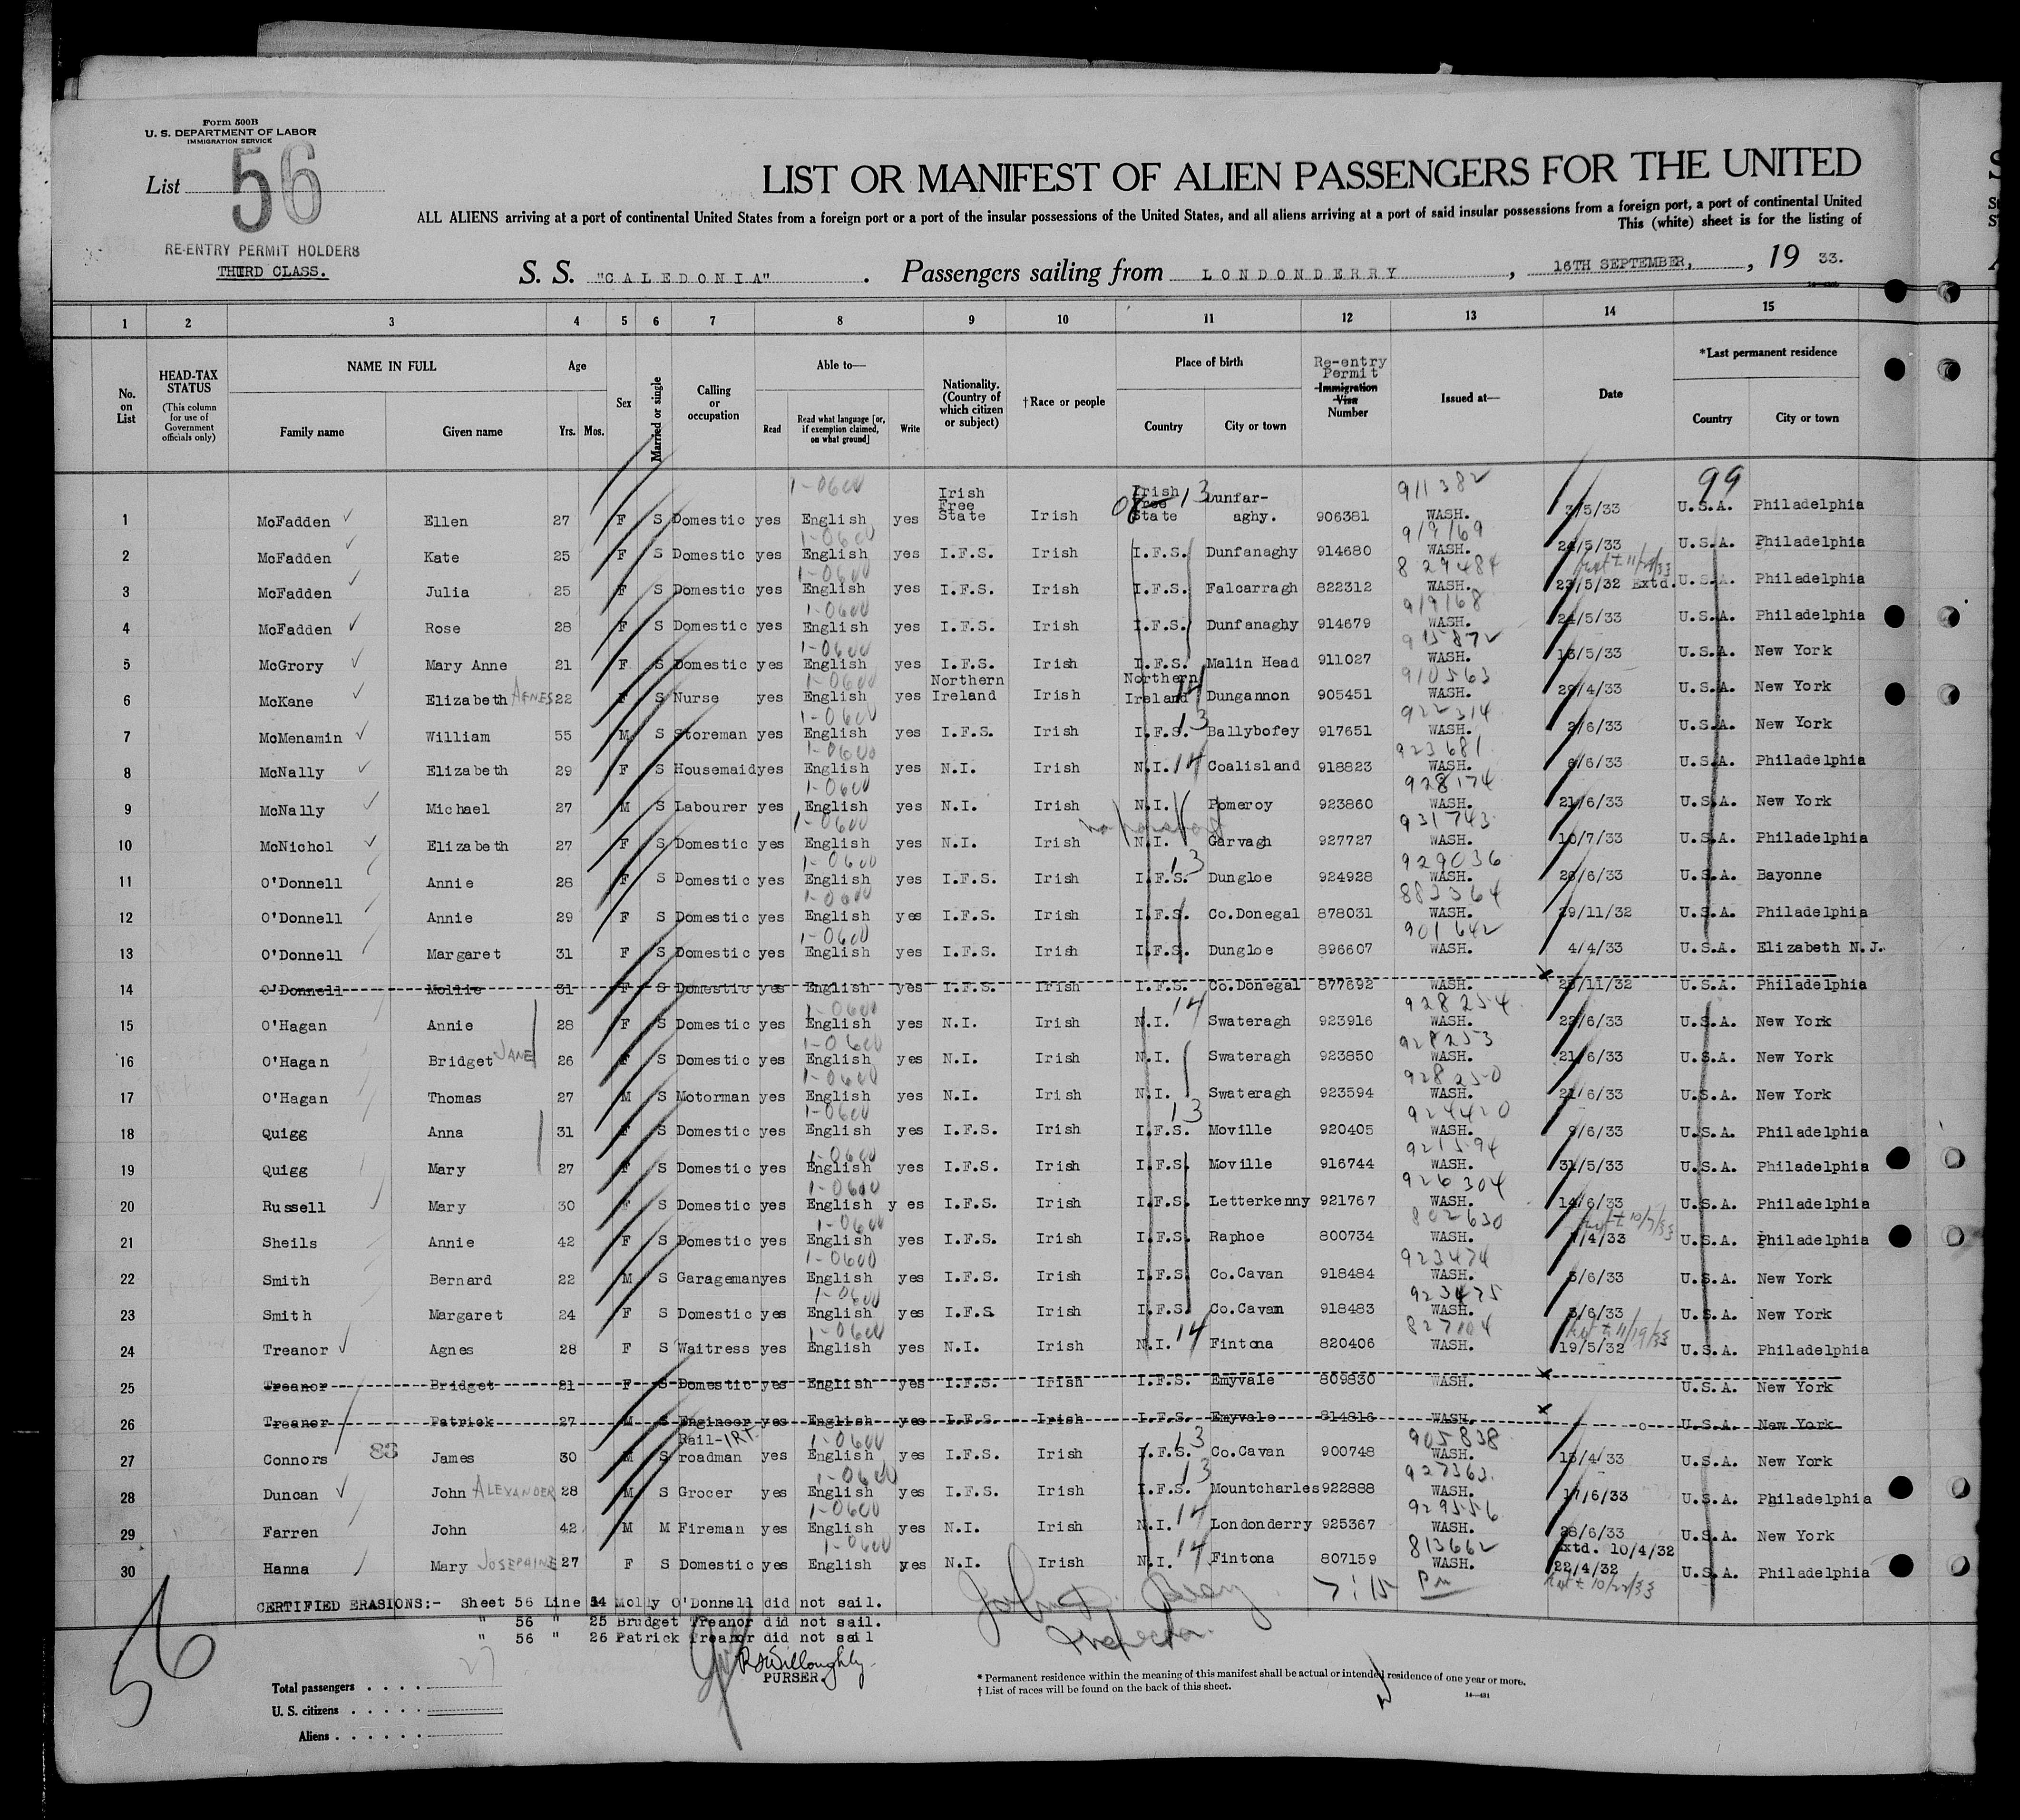 Form 500B
U. S. DEPARTMENT OF LABOR
IMMIGRATION SERVICE
List 56
RE-ENTRY PERMIT HOLDERS
THIRD CLASS.
LIST OR MANIFEST OF ALIEN PASSENGERS FOR THE UNITED
ALL ALIENS arriving at a port of continental United States from a foreign port or a port of the insular possessions of the United States, and all aliens arriving at a port of said insular possessions from a foreign port, a port of continental United
This (white) sheet is for the listing of
S. S. "CALEDONIA". Passengers sailing from LONDONDERRY, 16TH SEPTEMBER, , 19 33.
1 2 3 4 5 6 7 8 9 10 11 12 13 14 15
No. on List
HEAD-TAX STATUS (This column for use of Government officials only)
NAME IN FULL Family name Given name
Age Yrs. Mos.
Sex
Married or single
Calling or occupation
Able to— Read Read what language [or, if exemption claimed, on what ground] Write
Nationality. (Country of which citizen or subject)
†Race or people
Place of birth Country City or town
Re-entry Permit Immigration Visa Number
Issued at—
Date
*Last permanent residence Country City or town
1-0600 911382 99
1 McFadden Ellen 27 F S Domestic yes English yes Irish Free State Irish Irish Free State 13 Dunfar-aghy. 906381 WASH. 3/5/33 U.S.A. Philadelphia
1-0600 919169
2 McFadden Kate 25 F S Domestic yes English yes I.F.S. Irish I.F.S. Dunfanaghy 914680 WASH. 24/5/33 U.S.A. Philadelphia
1-0600 829484
3 McFadden Julia 25 F S Domestic yes English yes I.F.S. Irish I.F.S. Falcarragh 822312 WASH. 23/5/32 Extd. U.S.A. Philadelphia
1-0600 919168
4 McFadden Rose 28 F S Domestic yes English yes I.F.S. Irish I.F.S. Dunfanaghy 914679 WASH. 24/5/33 U.S.A. Philadelphia
1-0600 915872
5 McGrory Mary Anne 21 F S Domestic yes English yes I.F.S. Irish I.F.S. Malin Head 911027 WASH. 13/5/33 U.S.A. New York
1-0600 910563
6 McKane Elizabeth AGNES 22 F S Nurse yes English yes Northern Ireland Irish Northern Ireland 14 Dungannon 905451 WASH. 29/4/33 U.S.A. New York
1-0600 922314
7 McMenamin William 55 M S Storeman yes English yes I.F.S. Irish I.F.S. 13 Ballybofey 917651 WASH. 2/6/33 U.S.A. New York
1-0600 923681
8 McNally Elizabeth 29 F S Housemaid yes English yes N.I. Irish N.I. 14 Coalisland 918823 WASH. 6/6/33 U.S.A. Philadelphia
1-0600 928174
9 McNally Michael 27 M S Labourer yes English yes N.I. Irish N.I. Pomeroy 923860 WASH. 21/6/33 U.S.A. New York
1-0600 no passport 931743
10 McNichol Elizabeth 27 F S Domestic yes English yes N.I. Irish N.I. Garvagh 927727 WASH. 10/7/33 U.S.A. Philadelphia
1-0600 13 929036
11 O'Donnell Annie 28 F S Domestic yes English yes I.F.S. Irish I.F.S. Dungloe 924928 WASH. 26/6/33 U.S.A. Bayonne
1-0600 883364
12 O'Donnell Annie 29 F S Domestic yes English yes I.F.S. Irish I.F.S. Co.Donegal 878031 WASH. 29/11/32 U.S.A. Philadelphia
1-0600 901642
13 O'Donnell Margaret 31 F S Domestic yes English yes I.F.S. Irish I.F.S. Dungloe 896607 WASH. 4/4/33 U.S.A. Elizabeth N.J.
14 O'Donnell Mollie 31 F S Domestic yes English yes I.F.S. Irish I.F.S. Co.Donegal 877692 WASH. 25/11/32 U.S.A. Philadelphia
1-0600 14 928254
15 O'Hagan Annie 28 F S Domestic yes English yes N.I. Irish N.I. Swateragh 923916 WASH. 22/6/33 U.S.A. New York
1-0600 928253
16 O'Hagan Bridget JANE 26 F S Domestic yes English yes N.I. Irish N.I. Swateragh 923850 WASH. 21/6/33 U.S.A. New York
1-0600 928250
17 O'Hagan Thomas 27 M S Motorman yes English yes N.I. Irish N.I. Swateragh 923594 WASH. 21/6/33 U.S.A. New York
1-0600 13 924420
18 Quigg Anna 31 F S Domestic yes English yes I.F.S. Irish I.F.S. Moville 920405 WASH. 9/6/33 U.S.A. Philadelphia
1-0600 921594
19 Quigg Mary 27 F S Domestic yes English yes I.F.S. Irish I.F.S. Moville 916744 WASH. 31/5/33 U.S.A. Philadelphia
1-0600 926304
20 Russell Mary 30 F S Domestic yes English y es I.F.S. Irish I.F.S. Letterkenny 921767 WASH. 14/6/33 U.S.A. Philadelphia
1-0600 802630 10/7/33
21 Sheils Annie 42 F S Domestic yes English yes I.F.S. Irish I.F.S. Raphoe 800734 WASH. 7/4/33 U.S.A. Philadelphia
1-0600 923474
22 Smith Bernard 22 M S Garageman yes English yes I.F.S. Irish I.F.S. Co.Cavan 918484 WASH. 5/6/33 U.S.A. New York
1-0600 923475
23 Smith Margaret 24 F S Domestic yes English yes I.F.S Irish I.F.S. Co.Cavan 918483 WASH. 5/6/33 U.S.A. New York
1-0600 827104 11/19/33
24 Treanor Agnes 28 F S Waitress yes English yes N.I. Irish N.I. 14 Fintona 820406 WASH. 19/5/32 U.S.A. Philadelphia
25 Treanor Bridget 21 F S Domestic yes English yes I.F.S. Irish I.F.S. Emyvale 809830 WASH. U.S.A. New York
26 Treanor Patrick 27 M S Engineer yes English yes I.F.S. Irish I.F.S. Emyvale 814816 WASH. U.S.A. New York
1-0600 13 905838
27 Connors 83 James 30 M S Rail-roadman IRT yes English yes I.F.S. Irish I.F.S. Co.Cavan 900748 WASH. 15/4/33 U.S.A. New York
1-0600 13 927363
28 Duncan John ALEXANDER 28 M S Grocer yes English yes I.F.S. Irish I.F.S. Mountcharles 922888 WASH. 17/6/33 U.S.A. Philadelphia
1-0600 929556
29 Farren John 42 M M Fireman yes English yes N.I. Irish N.I. 14 Londonderry 925367 WASH. 28/6/33 U.S.A. New York
1-0600 813662 Extd. 10/4/32
30 Hanna Mary JOSEPHINE 27 F S Domestic yes English yes N.I. Irish N.I. 14 Fintona 807159 WASH. 22/4/32 U.S.A. Philadelphia
10/22/33
CERTIFIED ERASIONS:- Sheet 56 Line 14 Molly O'Donnell did not sail.
" 56 " 25 Brudget Treanor did not sail.
" 56 " 26 Patrick Treanor did not sail
John D. Inspector. 7:15 Pm
56
27
R Willoughby
PURSER.
Total passengers
U. S. citizens
Aliens
* Permanent residence within the meaning of this manifest shall be actual or intended residence of one year or more.
† List of races will be found on the back of this sheet.